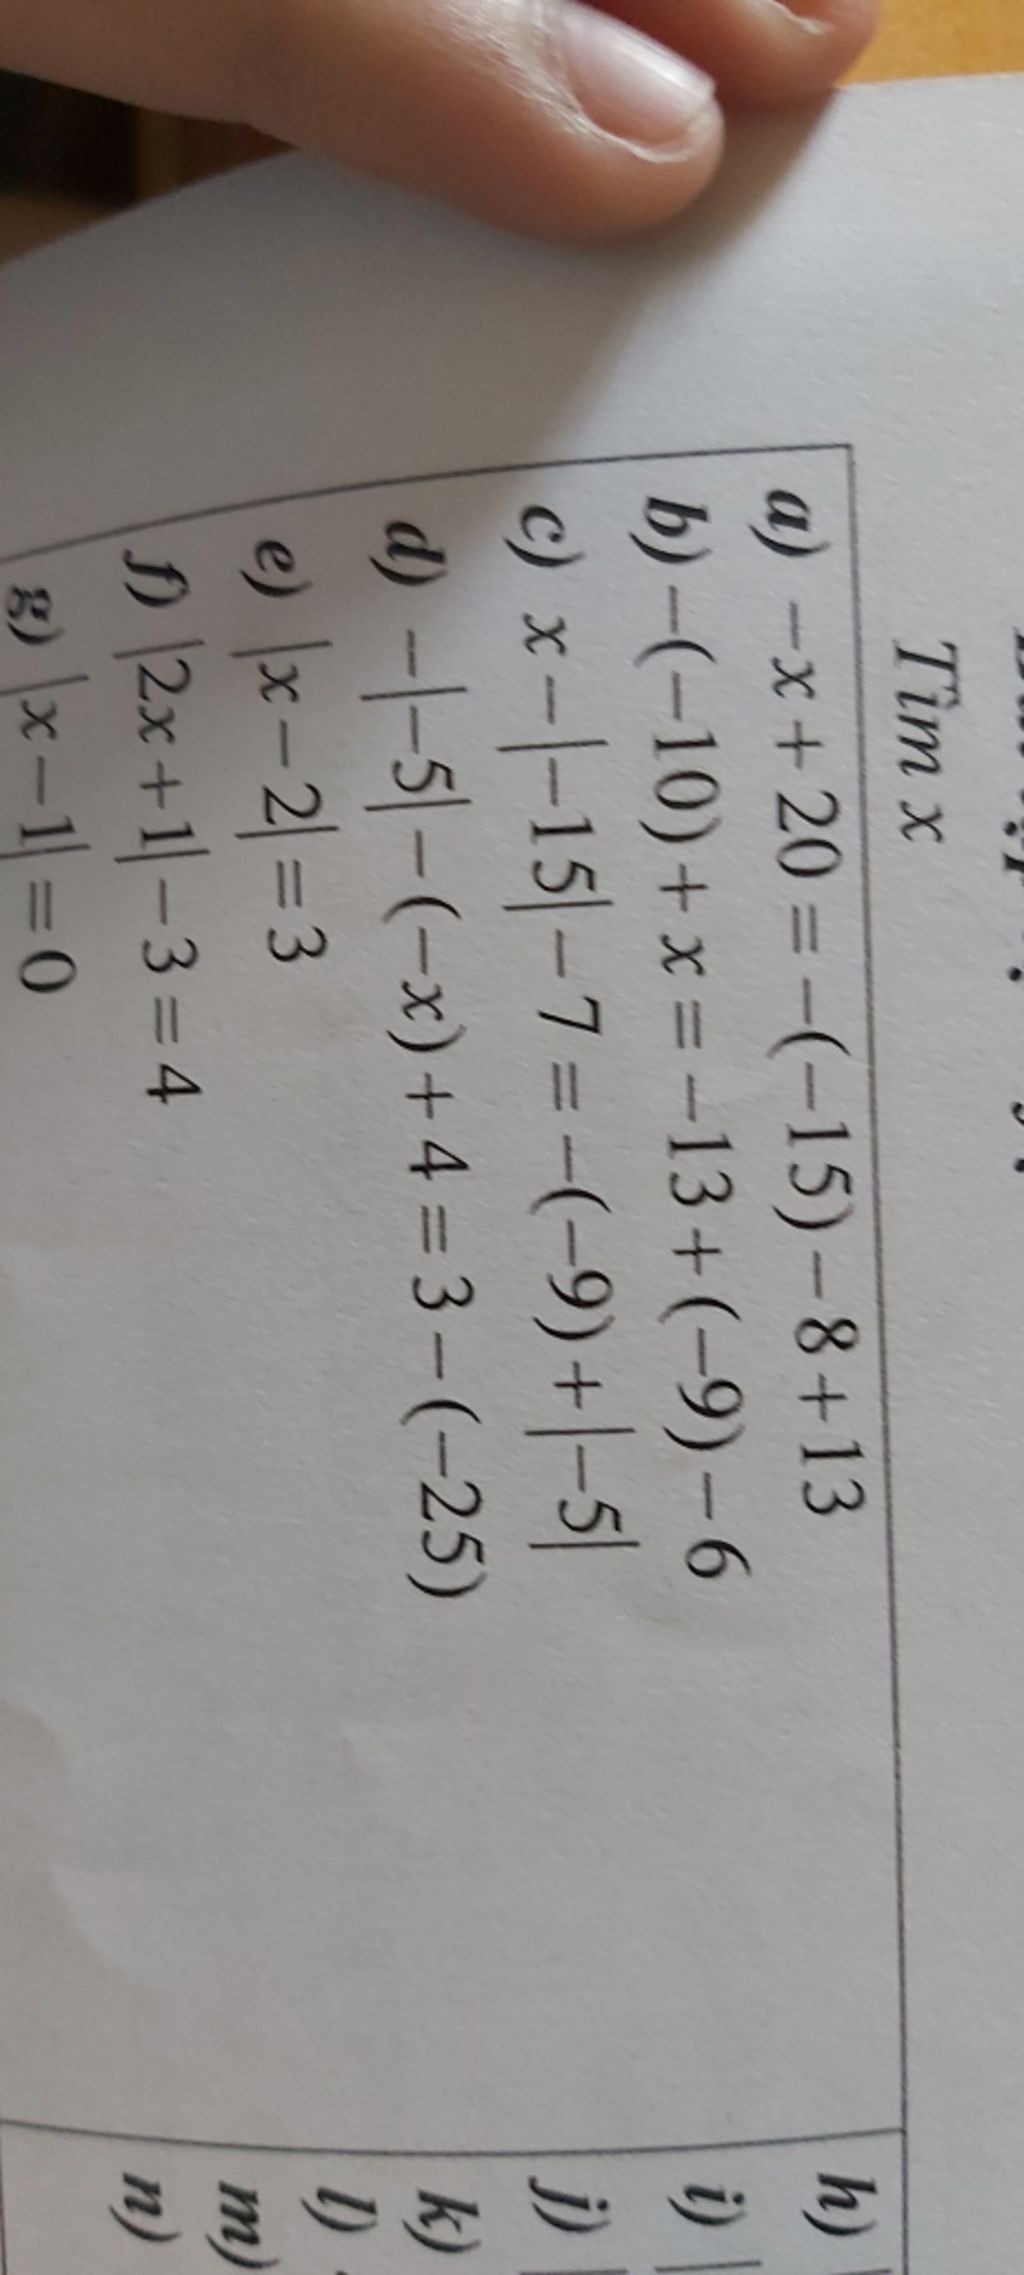 Tìm x
a) -x + 20 = -(-15) - 8 + 13
b) -(-10) + x = -13 + (-9) - 6
c) x - |-15| - 7 = -(-9) + |-5|
d) -|-5| - (-x) + 4 = 3 - (-25)
e) |x - 2| = 3
f) |2x + 1| - 3 = 4
g) |x - 1| = 0
h)
i)
j)
k)
l)
m)
n)